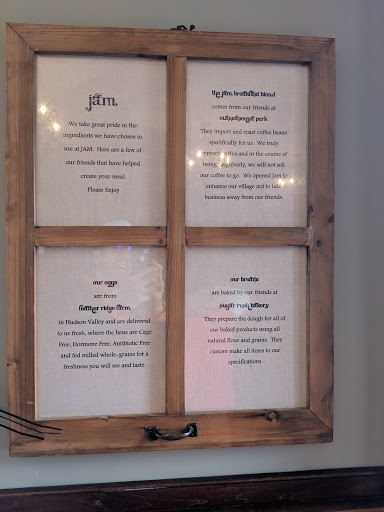 jam.
We take great pride in the
ingredients we have chosen to
use at JAM. Here are a few of
our friends that have helped
create your meal.
Please Enjoy
the jam breakfast blend
comes from our friends at
They import and roast coffee beans
specifically for us. We truly
appreciate this and in the course of
being neighborly, we will not sell
our coffee to go. We opened Jam to
enhance our village not to take
business away from our friends.
our eggs
are from
feather ridge farm.
in Hudson Valley and are delivered
to us fresh, where the hens are Cage
Free, Hormone Free, Antibiotic Free
and fed milled whole-grains for a
freshness you will see and taste.
our breads
are baked by our friends at
sugar rush bakery.
They prepare the dough for all of
our baked products using all
natural flour and grains. They
custom make all items to our
specifications